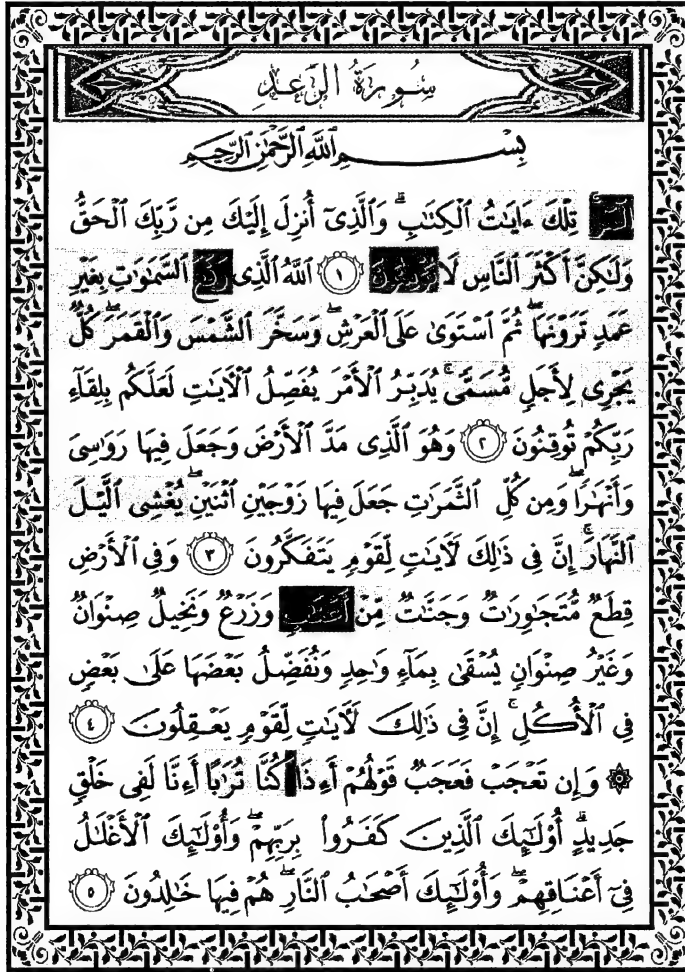 سُورَةُ الرَّعْدِ
بِسْمِ اللَّهِ الرَّحْمَٰنِ الرَّحِيمِ
تِلْكَ ءَايَٰتُ الْكِتَٰبِ ۗ وَالَّذِىٓ أُنزِلَ إِلَيْكَ مِن رَّبِّكَ الْحَقُّ
وَلَٰكِنَّ أَكْثَرَ النَّاسِ لَا ١ اللَّهُ الَّذِى السَّمَٰوَٰتِ بِغَيْرِ
عَمَدٍ تَرَوْنَهَا ۖ ثُمَّ اسْتَوَىٰ عَلَى الْعَرْشِ ۖ وَسَخَّرَ الشَّمْسَ وَالْقَمَرَ ۖ كُلٌّ
يَجْرِى لِأَجَلٍ مُّسَمًّى ۚ يُدَبِّرُ الْأَمْرَ يُفَصِّلُ الْءَايَٰتِ لَعَلَّكُم بِلِقَآءِ
رَبِّكُمْ تُوقِنُونَ ٢ وَهُوَ الَّذِى مَدَّ الْأَرْضَ وَجَعَلَ فِيهَا رَوَٰسِىَ
وَأَنْهَٰرًا ۖ وَمِن كُلِّ الثَّمَرَٰتِ جَعَلَ فِيهَا زَوْجَيْنِ اثْنَيْنِ ۖ يُغْشِى الَّيْلَ
النَّهَارَ ۚ إِنَّ فِى ذَٰلِكَ لَءَايَٰتٍ لِّقَوْمٍ يَتَفَكَّرُونَ ٣ وَفِى الْأَرْضِ
قِطَعٌ مُّتَجَٰوِرَٰتٌ وَجَنَّٰتٌ مِّنْ وَزَرْعٌ وَنَخِيلٌ صِنْوَانٌ
وَغَيْرُ صِنْوَانٍ يُسْقَىٰ بِمَآءٍ وَٰحِدٍ وَنُفَضِّلُ بَعْضَهَا عَلَىٰ بَعْضٍ
فِى الْأُكُلِ ۚ إِنَّ فِى ذَٰلِكَ لَءَايَٰتٍ لِّقَوْمٍ يَعْقِلُونَ ٤
۞ وَإِن تَعْجَبْ فَعَجَبٌ قَوْلُهُمْ أَءِذَا كُنَّا تُرَٰبًا أَءِنَّا لَفِى خَلْقٍ
جَدِيدٍ ۗ أُو۟لَٰٓئِكَ الَّذِينَ كَفَرُوا۟ بِرَبِّهِمْ ۖ وَأُو۟لَٰٓئِكَ الْأَغْلَٰلُ
فِىٓ أَعْنَاقِهِمْ ۖ وَأُو۟لَٰٓئِكَ أَصْحَٰبُ النَّارِ ۖ هُمْ فِيهَا خَٰلِدُونَ ٥